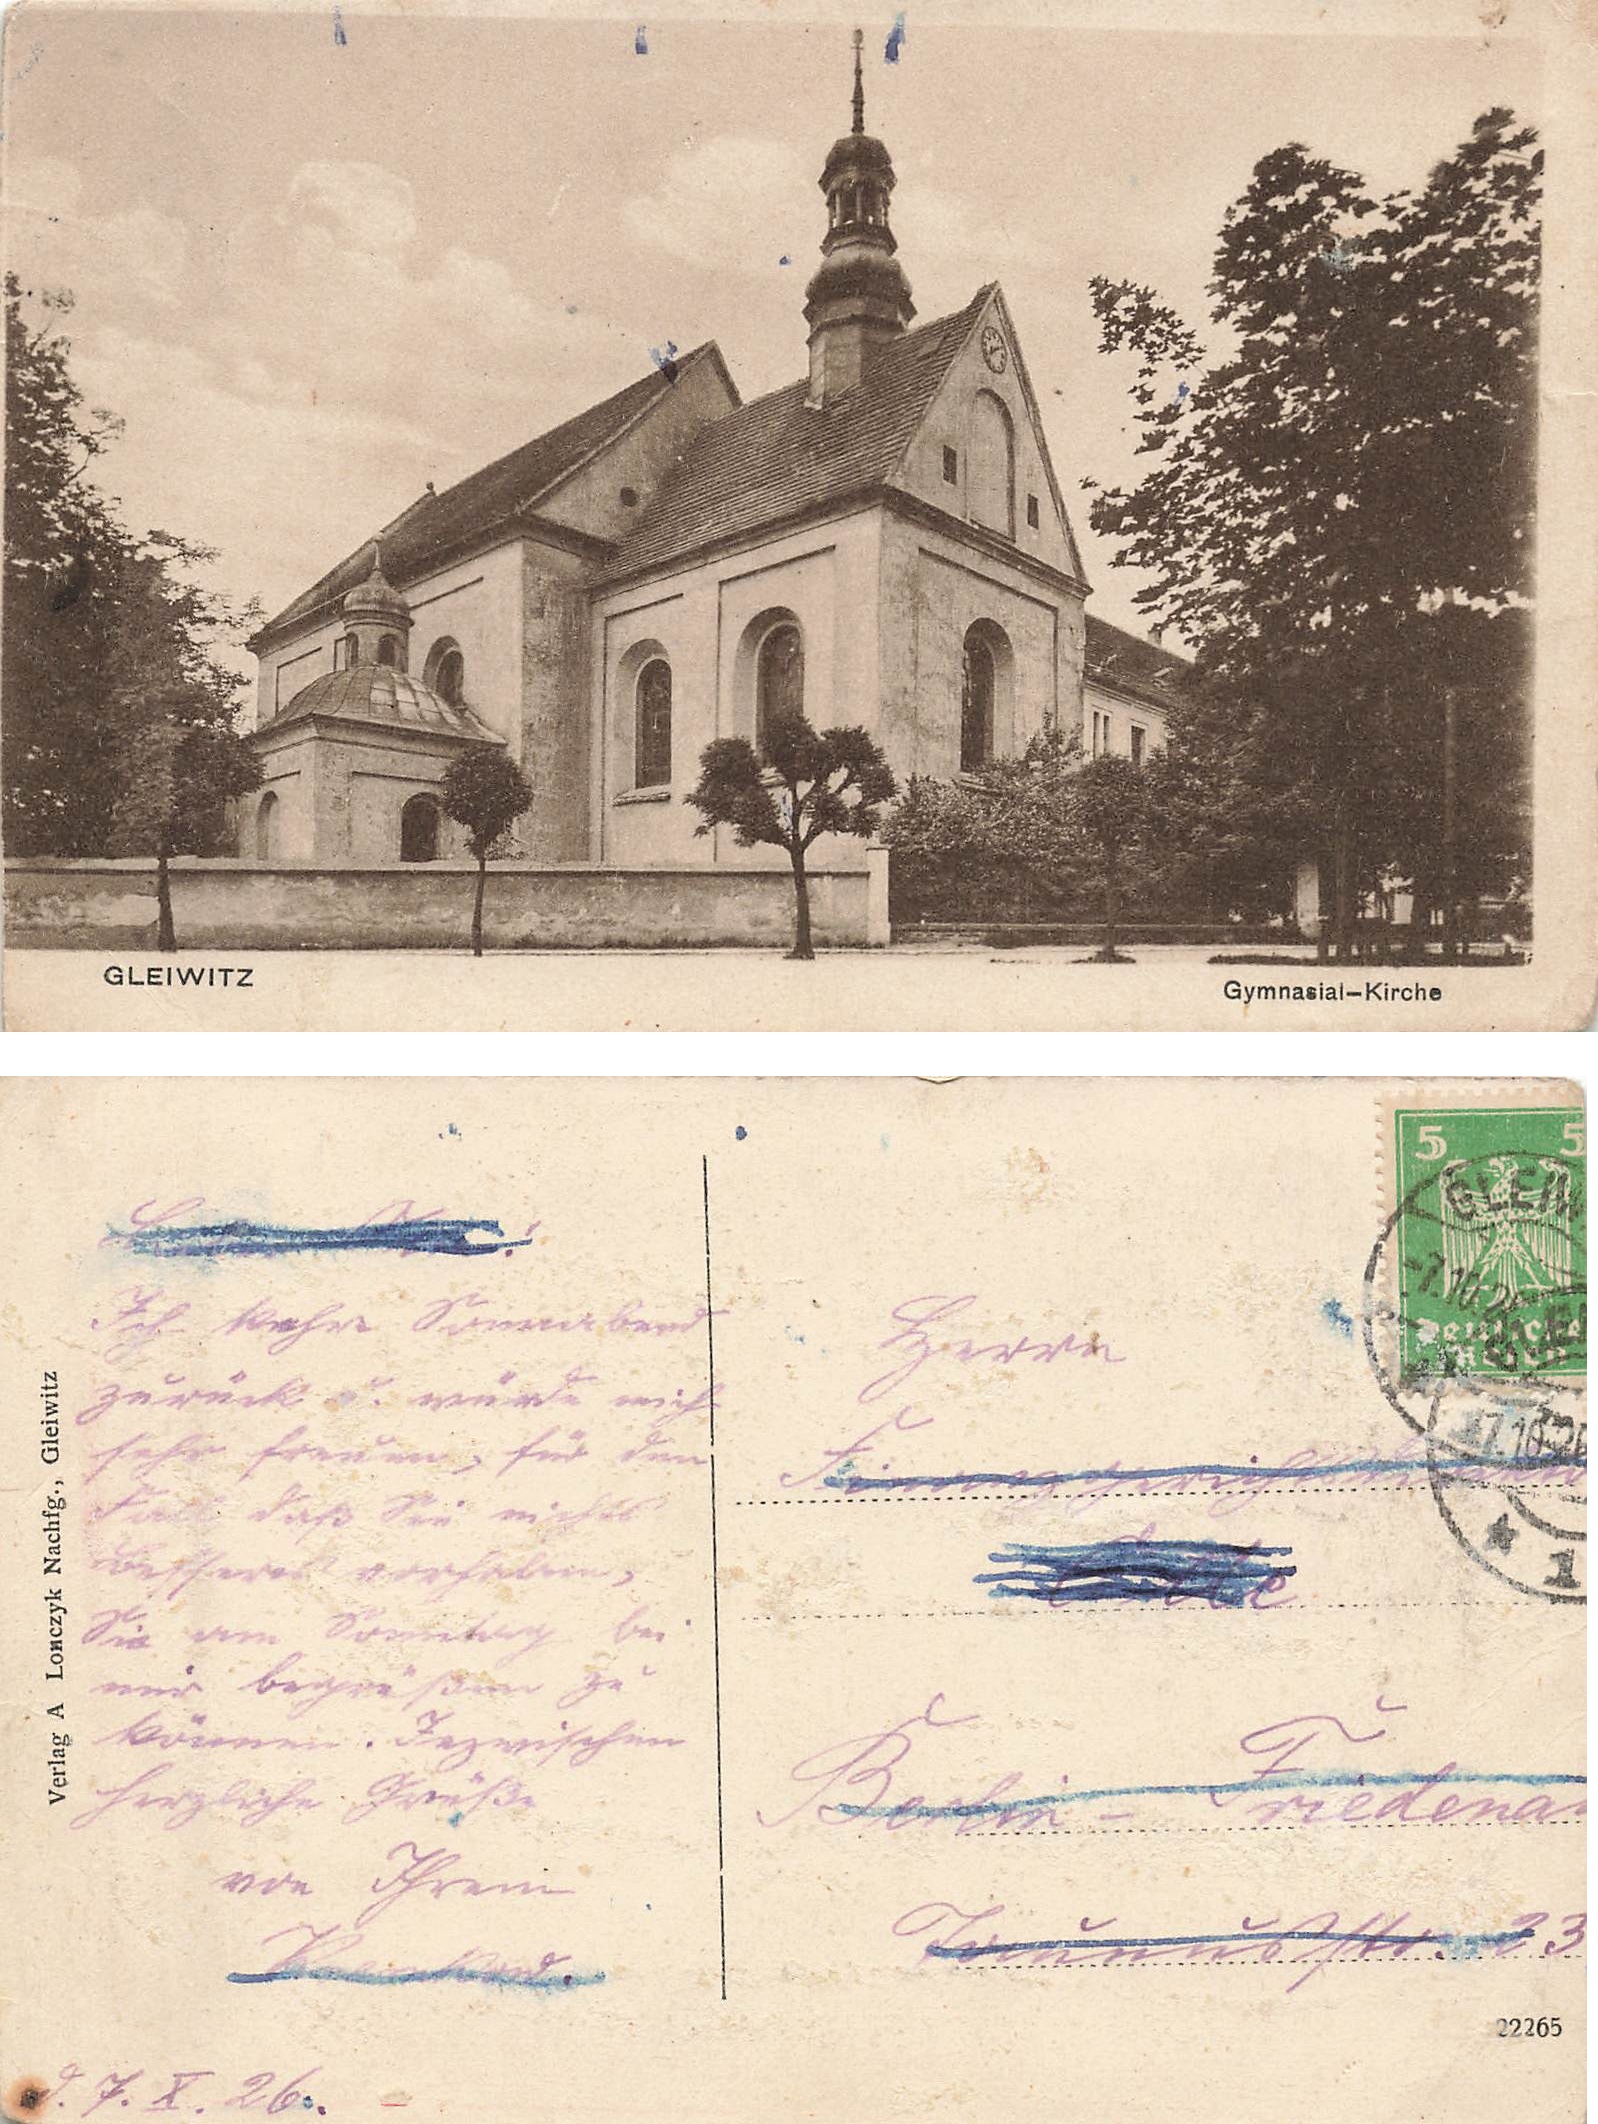 GLEIWITZ
Gymnasial-Kirche
Ich kehre Sonnabend
zurück u. würde mich
sehr freuen, für den
Fall daß Sie nichts
Besseres vorhaben,
Sie am Sonntag bei
mir begrüßen zu
können. Inzwischen
herzliche Grüße
von Ihrem
d. 7. X. 26.
Verlag A Lonczyk Nachfg., Gleiwitz
5 5
GLEIW
-7.10.26
Deutsches
Reich
7.10.26
* 1
Herrn
Berlin - Friedenau
Taunusstr. 23
22265